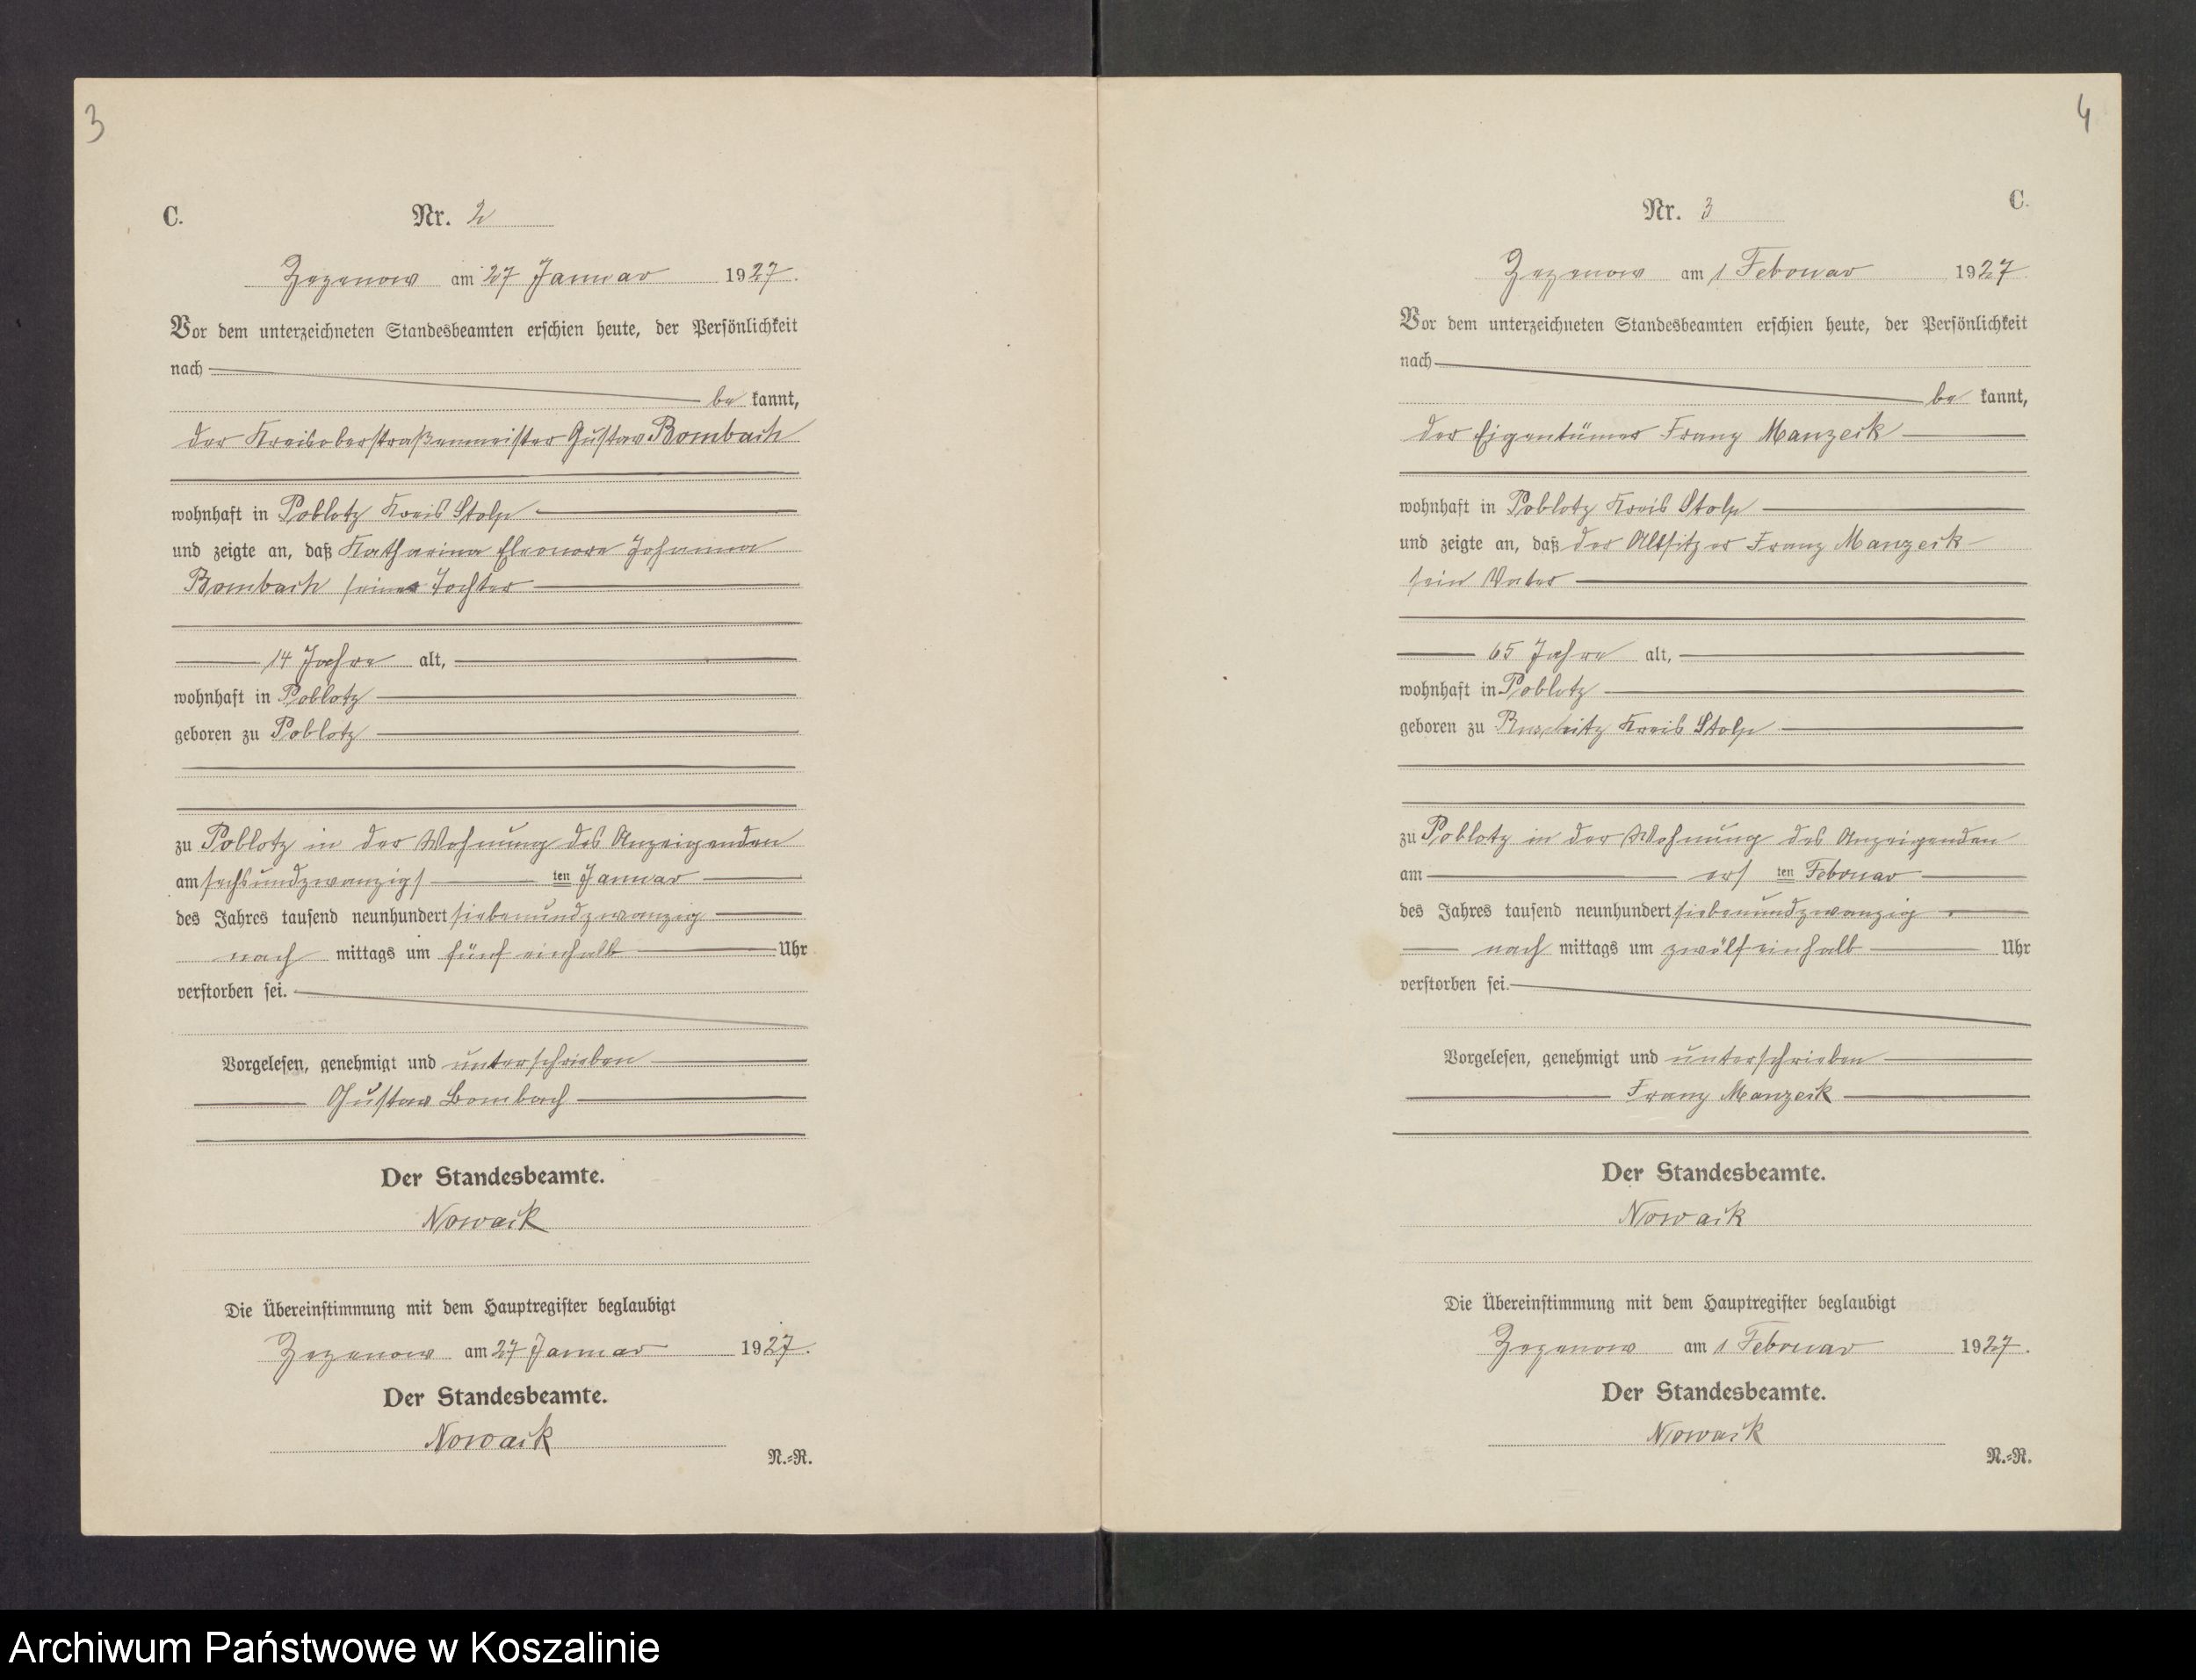 3
C.
Nr. 2
Zezenow am 27 Januar 1927.
Vor dem unterzeichneten Standesbeamten erschien heute, der Persönlichkeit
nach
be kannt,
der Kreisoberstraßenmeister Gustav Bombach
wohnhaft in Poblotz Kreis Stolp
und zeigte an, daß Katharina Eleonore Johanna
Bombach seine Tochter
14 Jahre alt,
wohnhaft in Poblotz
geboren zu Poblotz
zu Poblotz in der Wohnung des Anzeigenden
am sechsundzwanzigs ten Januar
des Jahres tausend neunhundert siebenundzwanzig
nach mittags um fünf einhalb Uhr
verstorben sei.
Vorgelesen, genehmigt und unterschrieben
Gustav Bombach
Der Standesbeamte.
Nowack
Die Übereinstimmung mit dem Hauptregister beglaubigt
Zezenow am 27 Januar 1927.
Der Standesbeamte.
Nowack
N.=R.
4
C.
Nr. 3
Zezenow am 1 Februar 1927
Vor dem unterzeichneten Standesbeamten erschien heute, der Persönlichkeit
nach
be kannt,
der Eigentümer Franz Manzeck
wohnhaft in Poblotz Kreis Stolp
und zeigte an, daß der Altsitzer Franz Manzeck
sein Vater
65 Jahre alt,
wohnhaft in Poblotz
geboren zu Kreis Stolp
zu Poblotz in der Wohnung des Anzeigenden
am ers ten Februar
des Jahres tausend neunhundert siebenundzwanzig
nach mittags um zwölf einhalb Uhr
verstorben sei.
Vorgelesen, genehmigt und unterschrieben
Franz Manzeck
Der Standesbeamte.
Nowack
Die Übereinstimmung mit dem Hauptregister beglaubigt
Zezenow am 1 Februar 1927.
Der Standesbeamte.
Nowack
N.=R.
Archiwum Państwowe w Koszalinie